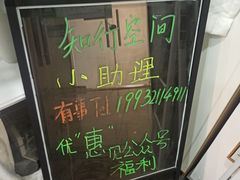 知行空间
小助理
有事Tel 19932114911
优“惠”见公众号
福利